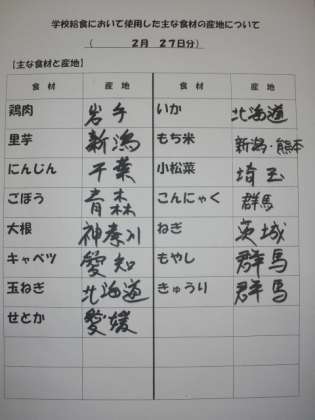 学校給食において使用した主な食材の産地について
( 2月 27日分)
【主な食材と産地】
食 材 産 地 食 材 産 地
鶏肉 岩手 いか 北海道
里芋 新潟 もち米 新潟・熊本
にんじん 千葉 小松菜 埼玉
ごぼう 青森 こんにゃく 群馬
大根 神奈川 ねぎ 茨城
キャベツ 愛知 もやし 群馬
玉ねぎ 北海道 きゅうり 群馬
せとか 愛媛